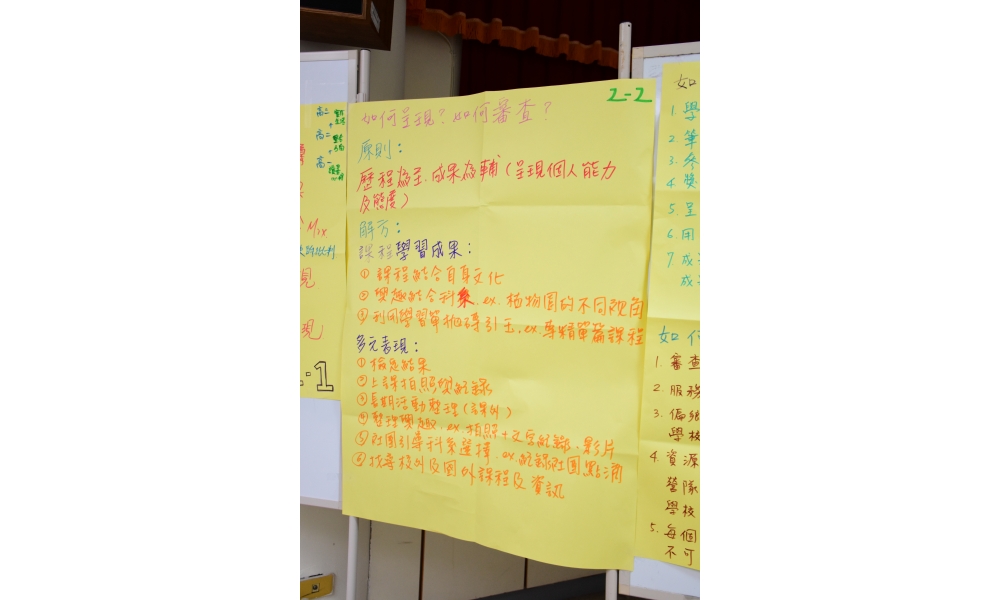 2-2
如何呈現?如何審查?
原則:
歷程為主,成果為輔(呈現個人能力
及態度)
解方:
課程學習成果:
① 課程結合自身文化
② 興趣結合科系. ex. 植物園的不同視角
③ 利用學習單 引 ex.專精單篇課程
多元表現:
① 檢定結果
② 上課拍照變紀錄
③ 長期活動整理(課外)
④ 整理興趣. ex.拍照+文字紀錄、影片
⑤ 社團引導科系選擇. ex.紀錄社團點滴
⑥ 找尋校外及國外課程及資訊
高二
高二
高一
Mix
見
現
-1
如
1. 學
2. 筆
3.
4. 獎
5. 呈
6. 用
7. 成
成
如何
1. 審查
2. 服務
3. 偏鄉
學校
4. 資源
營隊
學校
5. 每個
不可